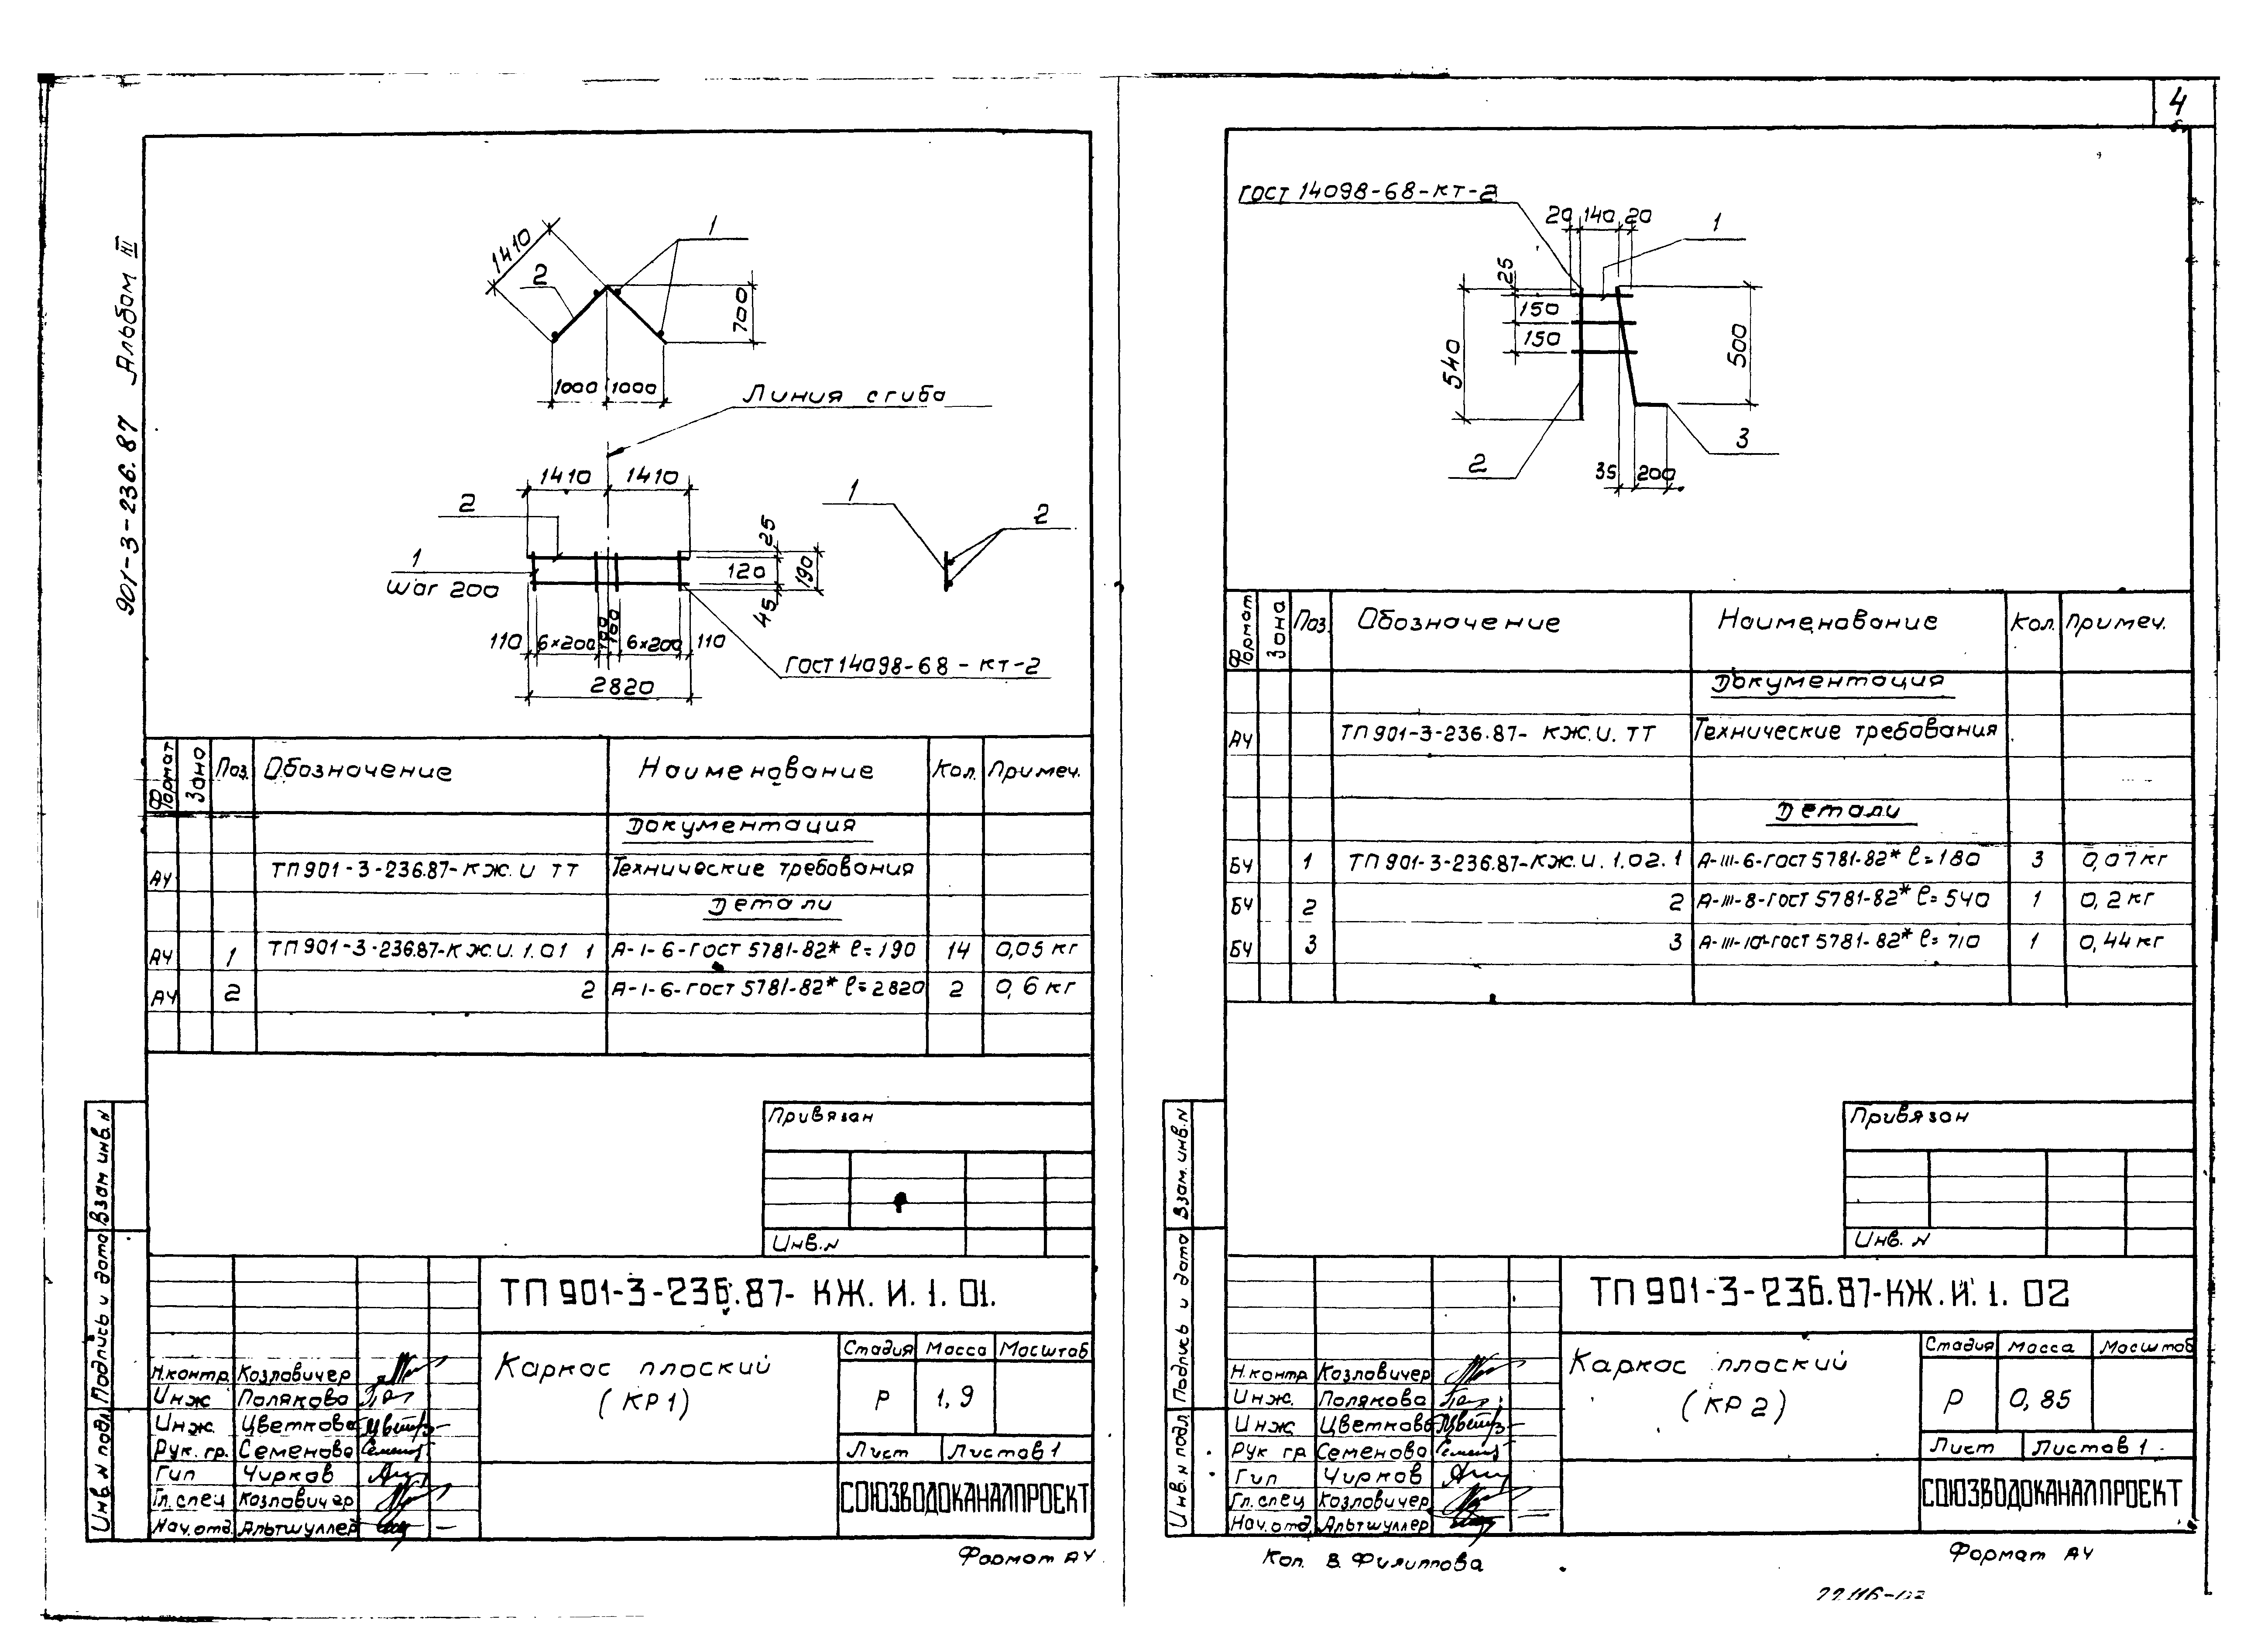 4
901-3-236.87 Альбом III
1410
2
1
700
1000 1000
Линия сгиба
1410 1410
2
1
шаг 200
25
120
190
45
110 6×200 100 100 6×200 110
2820
ГОСТ 14098-68-КТ-2
1
2
Формат
Зона
Поз.
Обозначение
Наименование
Кол.
Примеч.
Документация
А4 ТП 901-3-236.87-КЖ.И ТТ Технические требования
Детали
А4 1 ТП 901-3-236.87-КЖ.И.1.01 1 А-I-6-ГОСТ 5781-82* ℓ=190 14 0,05 кг
А4 2 2 А-I-6-ГОСТ 5781-82* ℓ=2820 2 0,6 кг
Привязан
Инв.N
Взам инв.N
Подпись и дата
Инв. N подл.
ТП 901-3-236.87-КЖ.И.1.01.
Н.контр. Козловичер
Инж Полякова
Инж. Цветкова
Рук. гр. Семенова
Гип Чирков
Гл.спец Козловичер
Нач.отд. Альтшуллер
Каркас плоский
(КР1)
Стадия Масса Масштаб
Р 1,9
Лист Листов 1
СОЮЗВОДОКАНАЛПРОЕКТ
Формат А4
ГОСТ 14098-68-КТ-2
20 140 20
1
25
150
150
540
500
2
3
35 200
Формат
Зона
Поз.
Обозначение
Наименование
Кол.
Примеч.
Документация
А4 ТП 901-3-236.87-КЖ.И.ТТ Технические требования
Детали
БЧ 1 ТП 901-3-236.87-КЖ.И.1.02.1 А-III-6-ГОСТ 5781-82* ℓ=180 3 0,07 кг
БЧ 2 2 А-III-8-ГОСТ 5781-82* ℓ=540 1 0,2 кг
БЧ 3 3 А-III-10-ГОСТ 5781-82* ℓ=710 1 0,44 кг
Привязан
Инв. N
Взам. инв.N
Подпись и дата
Инв. N подл.
ТП 901-3-236.87-КЖ.И.1.02
Н.контр Козловичер
Инж. Полякова
Инж Цветкова
Рук гр Семенова
Гип Чирков
Гл.спец Козловичер
Нач.отд. Альтшуллер
Каркас плоский
(КР2)
Стадия Масса Масштаб
Р 0,85
Лист Листов 1
СОЮЗВОДОКАНАЛПРОЕКТ
Коп. В. Филиппова
Формат А4